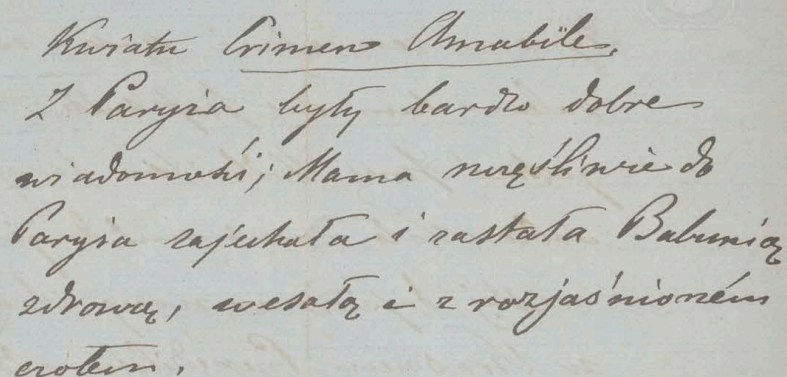 Kwiatu Crimen Amabile.
Z Paryża były bardzo dobre
wiadomości; Mama szczęśliwie do
Paryża zajechała i zastała Babunią
zdrową, wesołą i z rozjaśnioném
czołem.